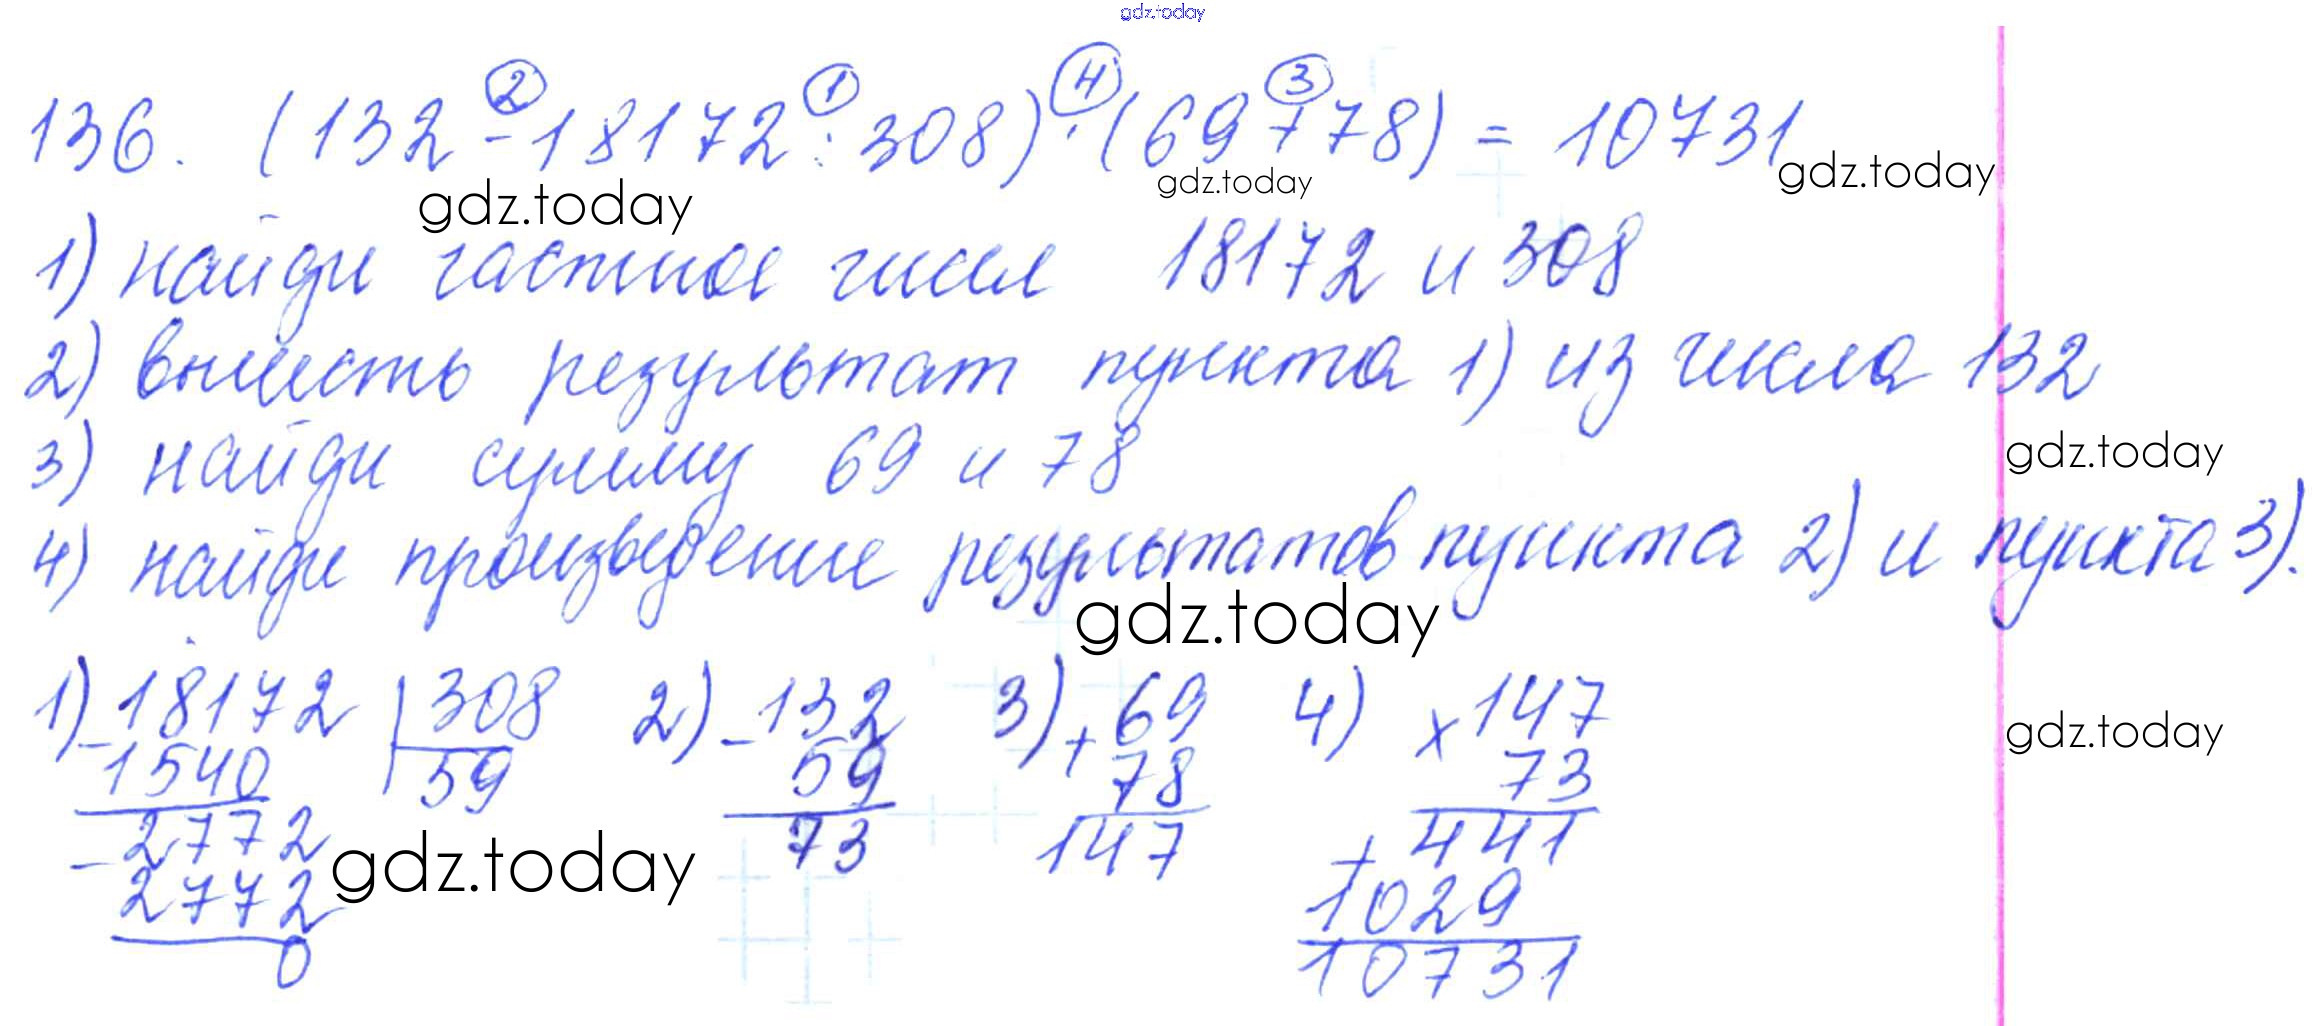 gdz.today
136. (132 - 18172 : 308) · (69 + 78) = 10731
2 1 4 3
gdz.today
gdz.today
gdz.today
1) найди частное чисел 18172 и 308
2) вычесть результат пункта 1) из числа 132
3) найди сумму 69 и 78
gdz.today
4) найди произведение результатов пункта 2) и пункта 3).
gdz.today
1) - 18172 | 308 2) - 132 3) + 69 4) × 147
gdz.today
1540 59 59 78 73
2772 73 147 + 441
gdz.today
- 2772 1029
0 10731